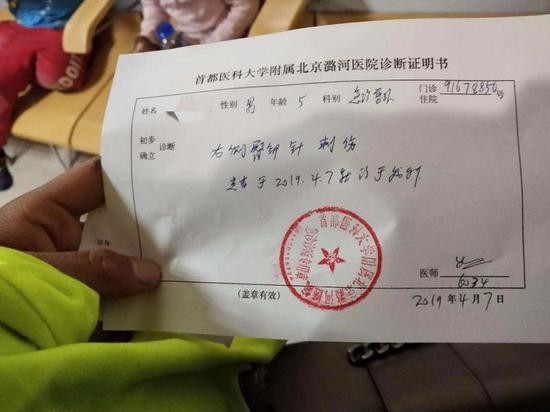 首都医科大学附属北京潞河医院诊断证明书
姓名 性别 男 年龄 5 科别 急诊 门诊 住院 91678850号
初步 确立 诊断
右侧臀部针刺伤
患者于2019.4.7
首都医科大学附属北京潞河医院
医师
6034
(盖章有效)
2019年4月7日